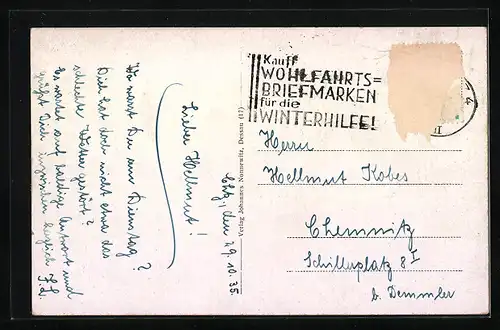 Chtz., den 29.10.35
Lieber Hellmut!
Wo warst Du am Dienstag?
Dich hat doch nicht etwa das
schlechte Wetter gestört?
Es wartet auf baldige Antwort und
grüßt Dich inzwischen herzlich
Verlag Johannes Dessau (17)
Kauft
WOHLFAHRTS=
BRIEFMARKEN
für die
WINTERHILFE!
Herrn
Hellmut Kobes
Chemnitz
Schillerplatz 8 I
b. Demmler